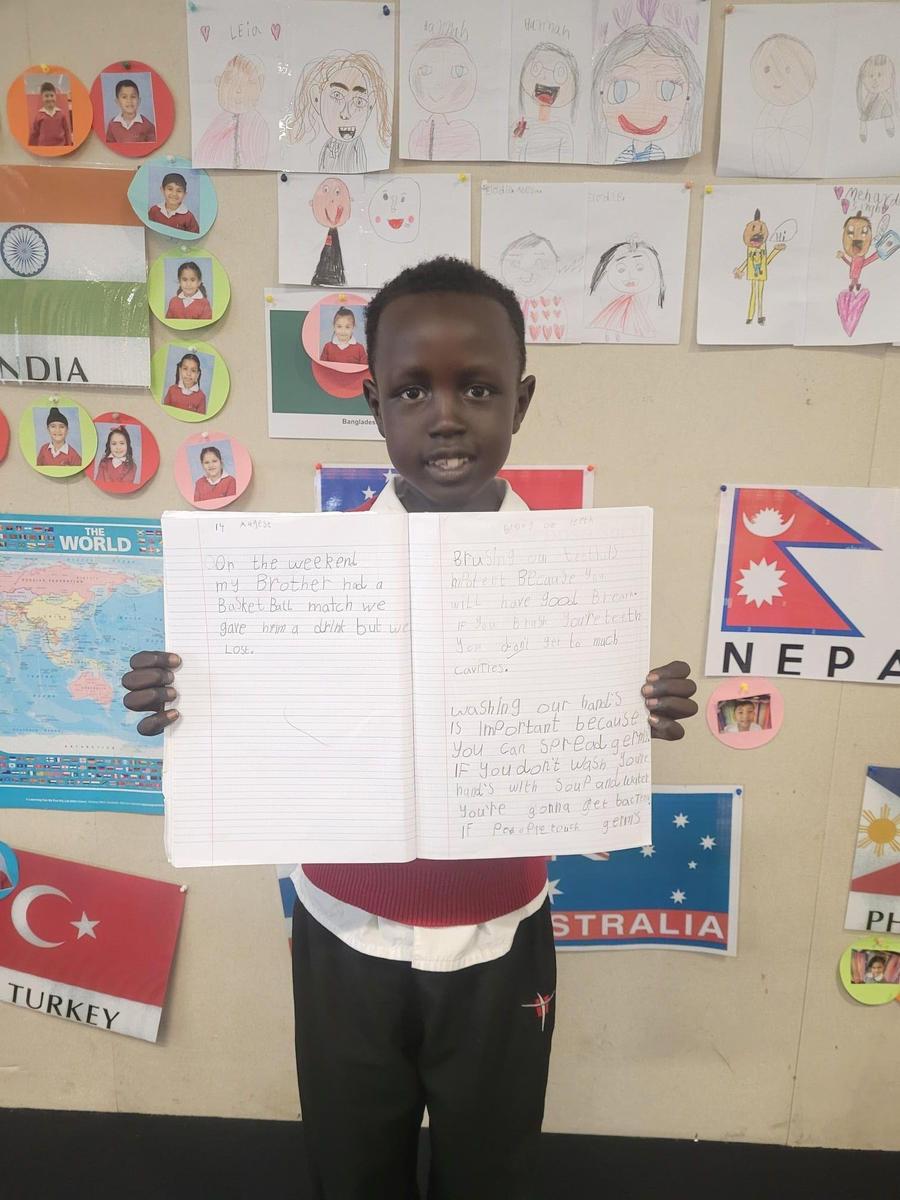 LEia
Hannah
INDIA
Bangladesh
THE
WORLD
NEPA
14 August
On the weekend
my Brother had a
BasketBall match we
gave him a drink but we
Lost.
Brusing our teeth is
Because you
will have good Breath.
IF You brush you're teeth
You don't get to much
cavities.
washing our hand's
IS Important because
You can spread germs.
IF You don't wash You're
hand's with Soup and water
You're gonna get bacteria
IF touch germs
STRALIA
TURKEY
PH
Hi